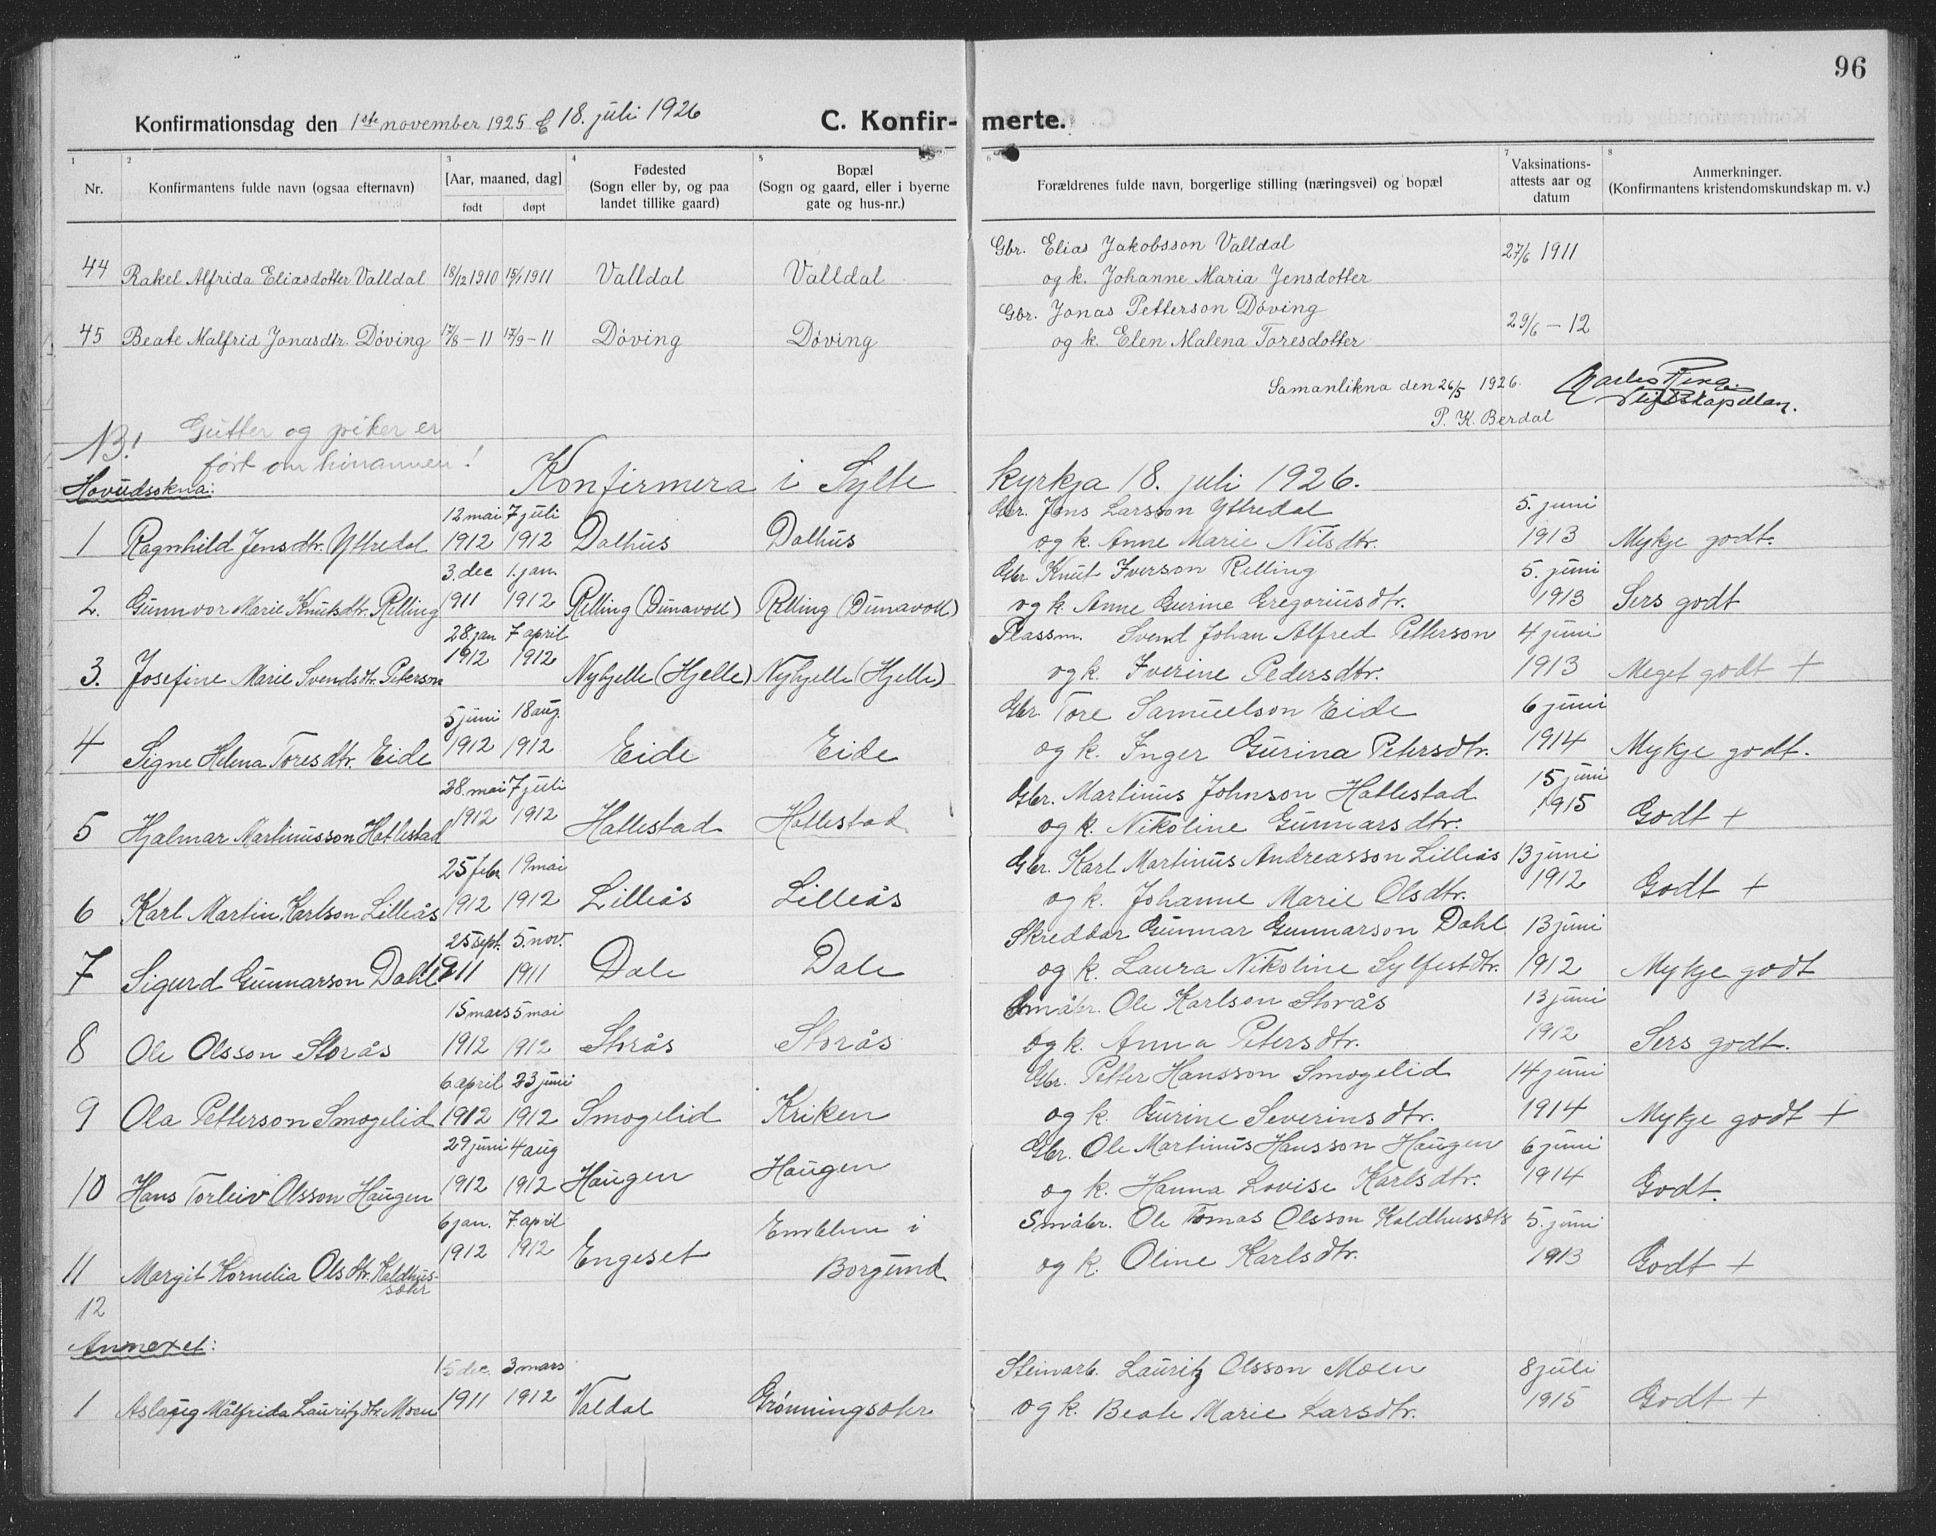 96
Konfirmationsdag den 1ste november 1925 & 18. juli 1926 C. Konfir- merte.
1 2 3 4 5 6 7 8
Nr.
Konfirmantens fulde navn (ogsaa efternavn)
[Aar, maaned, dag]
født døpt
Fødested
(Sogn eller by, og paa
landet tillike gaard)
Bopæl
(Sogn og gaard, eller i byerne
gate og hus-nr.)
Forældrenes fulde navn, borgerlige stilling (næringsvei) og bopæl
Vaksinations-
attests aar og
datum
Anmerkninger.
(Konfirmantens kristendomskundskap m. v.)
Gbr. Elias Jakobsson Valldal
44 Rakel Alfrida Eliasdotter Valldal 18/12 1910 15/1 1911 Valldal Valldal 27/6 1911
og k. Johanne Maria Jensdotter
Gbr. Jonas Petterson Döving
45 Beate Malfrid Jonasdtr. Döving 17/8 - 11 17/9 - 11 Döving Döving 29/6 - 12
og k. Elen Malena Toresdotter
Samanlikna den 26/5 1926.
P. K. Berdal
NB! Gutter og piker er
ført om hinannen!
Hovudsokna:
Konfirmera i Sylte kyrkja 18. juli 1926.
12 mai 7 juli Gbr. Jens Larsson Yttredal 5. juni
1 Ragnhild Jensdtr. Yttredal 1912 1912 Dalhus Dalhus og k. Anne Marie Nilsdtr. 1913 Mykje godt.
3. dec 1. jan. Gbr Knut Iverson Relling 5. juni
2. Gunnvor Marie Knutsdtr. Relling 1911 1912 Relling (Dunavoll) Relling (Dunavoll) og k Anne Gurine Gregoriusdtr. 1913 Sers godt
28. jan 7 april Plassm. Svend Johan Alfred Petterson 4 juni
3. Josefine Marie Svendsdtr. Peterson 1912 1912 Nyhjelle (Hjelle) Nyhjelle (Hjelle) og k. Iverine Pedersdtr. 1913 Meget godt +
5 juni 18 aug. Gbr. Tore Samuelson Eide 6 juni
4 Signe Helena Toresdtr. Eide 1912 1912 Eide Eide og k. Inger Gurina Petersdtr. 1914 Mykje godt.
28. mai 7 juli Gbr. Martinus Johnson Hallestad 15 juni
5 Hjalmar Martinusson Hallestad 1912 1912 Hallestad Hallestad og k. Nikoline Gunnarsdtr. 1915 Godt +
25 febr. 19 mai Gbr. Karl Martinus Andreasson Lilleås 13 juni
6 Karl Martin Karlson Lilleås 1912 1912 Lilleås Lilleås og k. Johanne Marie Olsdtr. 1912 Godt +
25 sept. 5. nov. Skreddar Gunnar Gunnarson Dahl 13 juni
7 Sigurd Gunnarson Dahl 1911 1911 Dale Dale og k. Laura Nikoline Sylfestdtr. 1912 Mykje godt
15 mars 5 mai Småbr. Ole Karlson Storås 13 juni
8 Ole Olsson Storås 1912 1912 Storås Storås og k. Anna Petersdtr. 1912 Sers godt.
6 april 23 juni Gbr. Petter Hansson Smogelid 14 juni
9 Ola Petterson Smogelid 1912 1912 Smogelid Kriken og k. Gurine Severinsdtr. 1914 Mykje godt +
29 juni 4 aug Gbr. Ole Martinus Hansson Haugen 6 juni
10 Hans Torleiv Olsson Haugen 1912 1912 Haugen Haugen og k. Hanna Lovise Karlsdtr. 1914 Godt.
6 jan. 7 april Emblem i Småbr. Ole Tomas Olsson Kaldhussætr 5. juni
11 Margit Kornelia Olsdtr. Kaldhus- 1912 1912 Engeset Borgund og k. Oline Karlsdtr. 1913 Godt +
sætr
12
Annexet:
15 dec. 3 mars Steinarb. Lauritz Olsson Moen 8 juli
1 Aslaug Målfrida Lauritzdtr. Moen 1911 1912 Valdal Grønningsæter og k. Beate Marie Larsdtr. 1915 Godt +